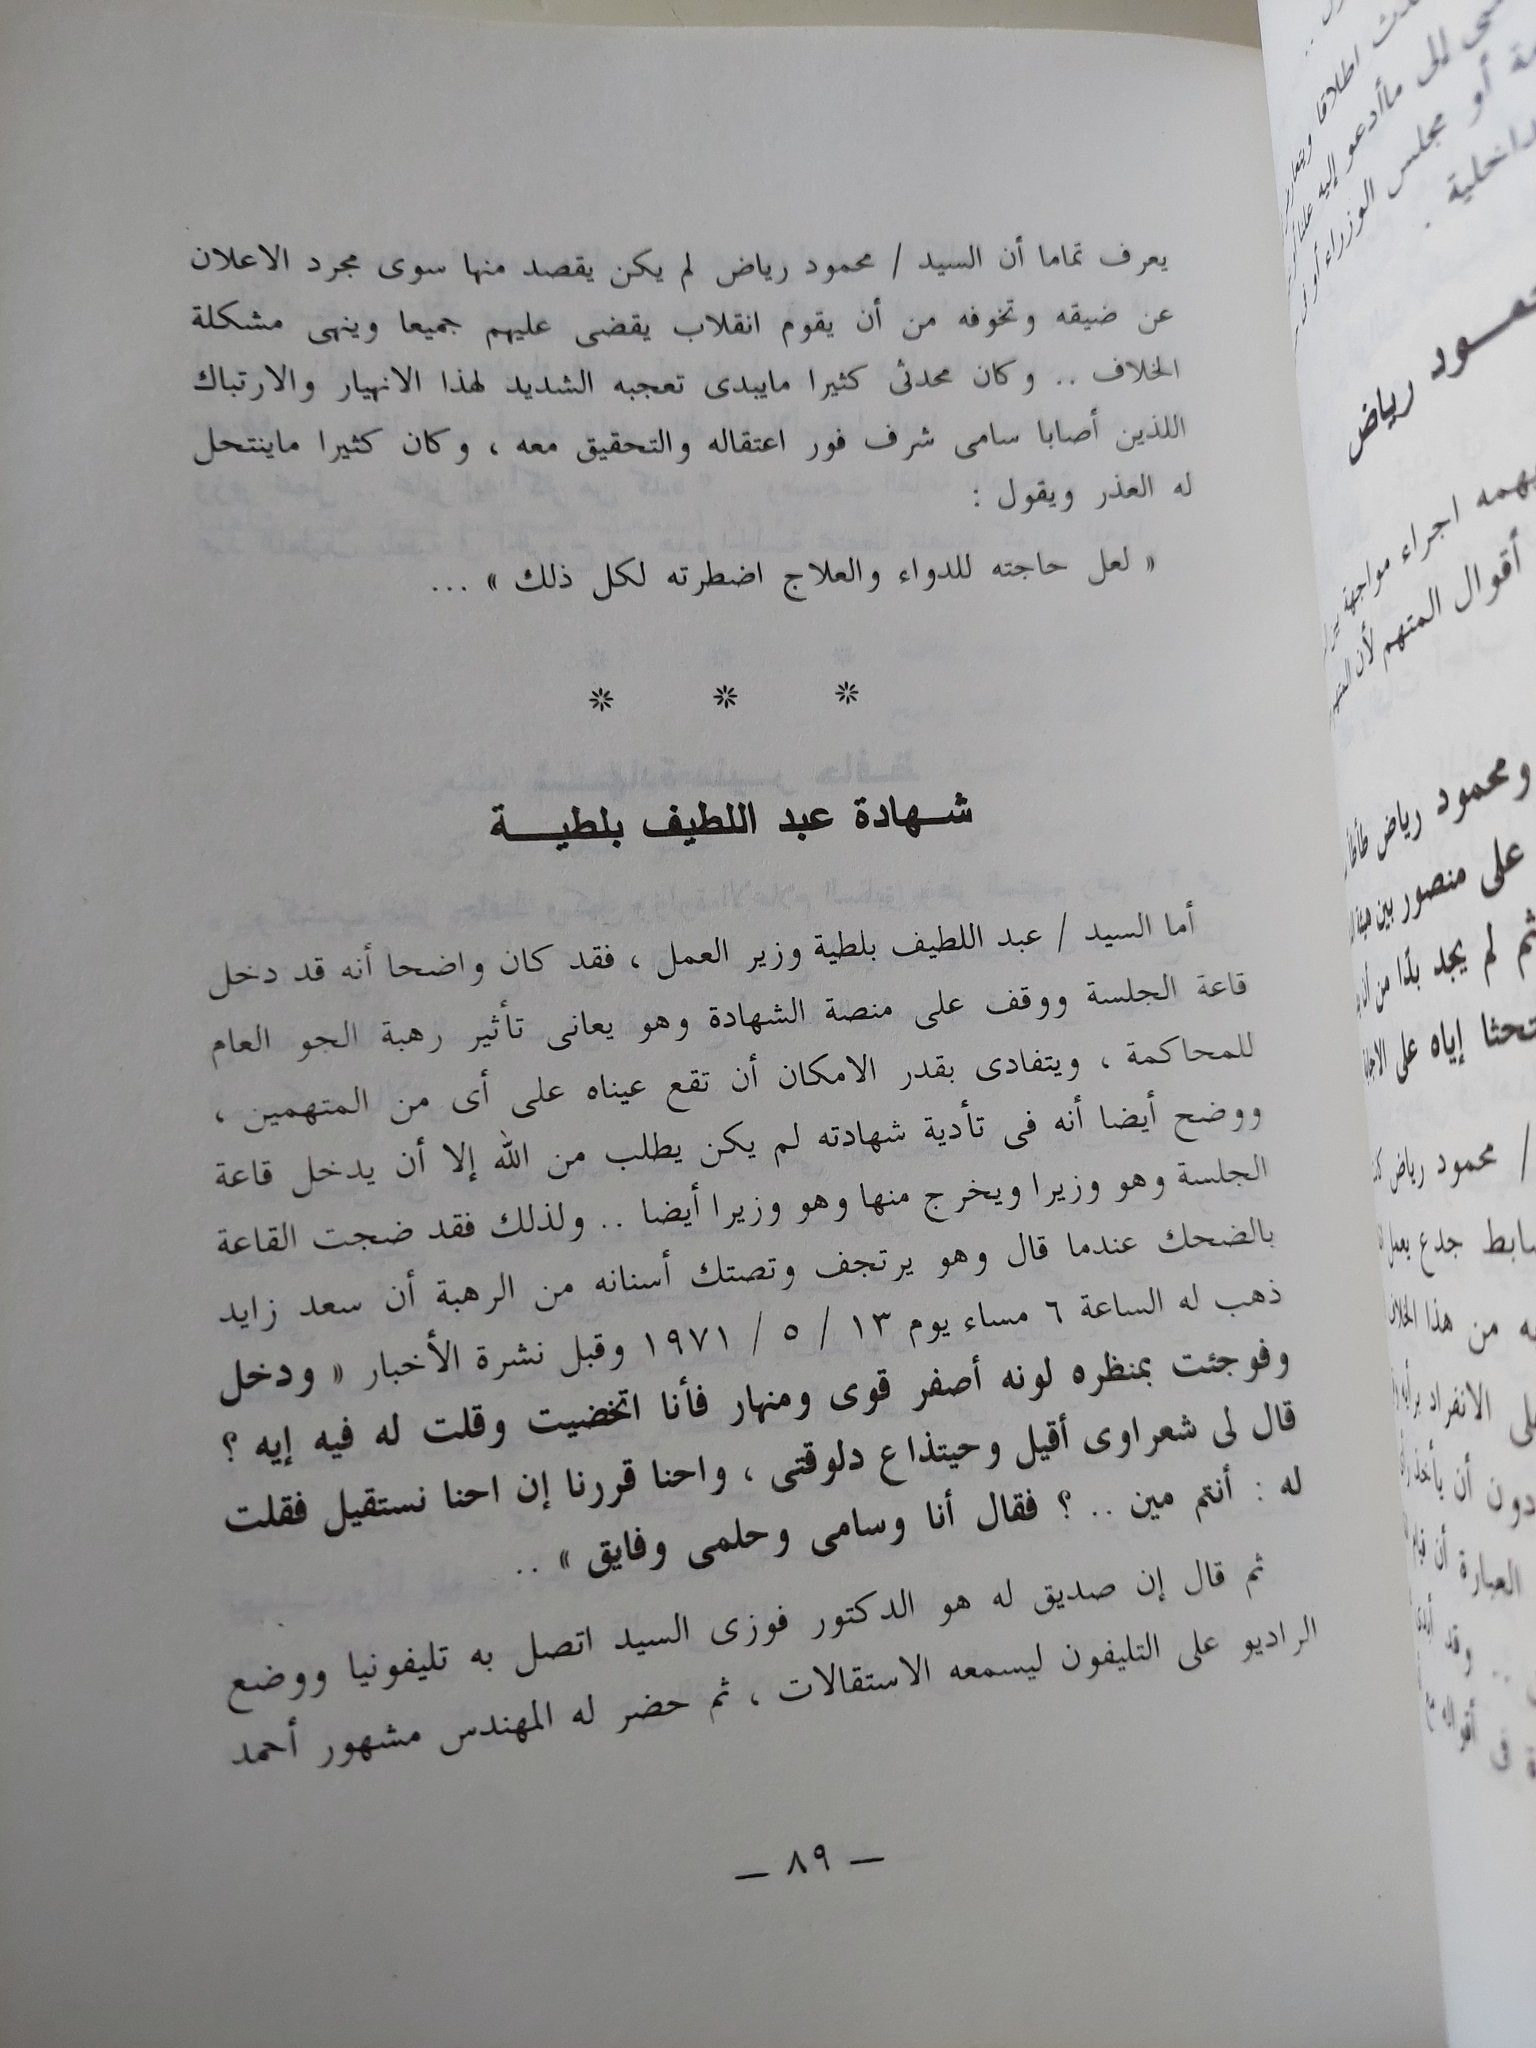 يعرف تماما أن السيد / محمود رياض لم يكن يقصد منها سوى مجرد الاعلان
عن ضيقه وتخوفه من أن يقوم انقلاب يقضى عليهم جميعا وينهى مشكلة
الخلاف .. وكان محدثى كثيرا مايبدى تعجبه الشديد لهذا الانهيار والارتباك
اللذين أصابا سامى شرف فور اعتقاله والتحقيق معه ، وكان كثيرا ماينتحل
له العذر ويقول :
« لعل حاجته للدواء والعلاج اضطرته لكل ذلك » ...
* * *
شهادة عبد اللطيف بلطية
أما السيد / عبد اللطيف بلطية وزير العمل ، فقد كان واضحا أنه قد دخل
قاعة الجلسة ووقف على منصة الشهادة وهو يعانى تأثير رهبة الجو العام
للمحاكمة ، ويتفادى بقدر الامكان أن تقع عيناه على أى من المتهمين ،
ووضح أيضا أنه فى تأدية شهادته لم يكن يطلب من الله إلا أن يدخل قاعة
الجلسة وهو وزيرا ويخرج منها وهو وزيرا أيضا .. ولذلك فقد ضجت القاعة
بالضحك عندما قال وهو يرتجف وتصتك أسنانه من الرهبة أن سعد زايد
ذهب له الساعة ٦ مساء يوم ١٣ / ٥ / ١٩٧١ وقبل نشرة الأخبار « ودخل
وفوجئت بمنظره لونه أصفر قوى ومنهار فأنا اتخضيت وقلت له فيه إيه ؟
قال لى شعراوى أقيل وحيتذاع دلوقتى ، واحنا قررنا إن احنا نستقيل فقلت
له : أنتم مين .. ؟ فقال أنا وسامى وحلمى وفايق » ..
ثم قال إن صديق له هو الدكتور فوزى السيد اتصل به تليفونيا ووضع
الراديو على التليفون ليسمعه الاستقالات ، ثم حضر له المهندس مشهور أحمد
— ٨٩ —
اطلاقا
إلى ماأدعو إليه علنا
أو مجلس الوزراء أو
رياض
اجراء مواجهة
أقوال المتهم لأن
ومحمود رياض
على منصور بين هيئة
ثم لم يجد بدًا من أن
إياه على
/ محمود رياض
جدع يعمل
من هذا الخلاف
الانفراد برأيه
دون أن يأخذ
العبارة أن
.. وقد
فى أقواله